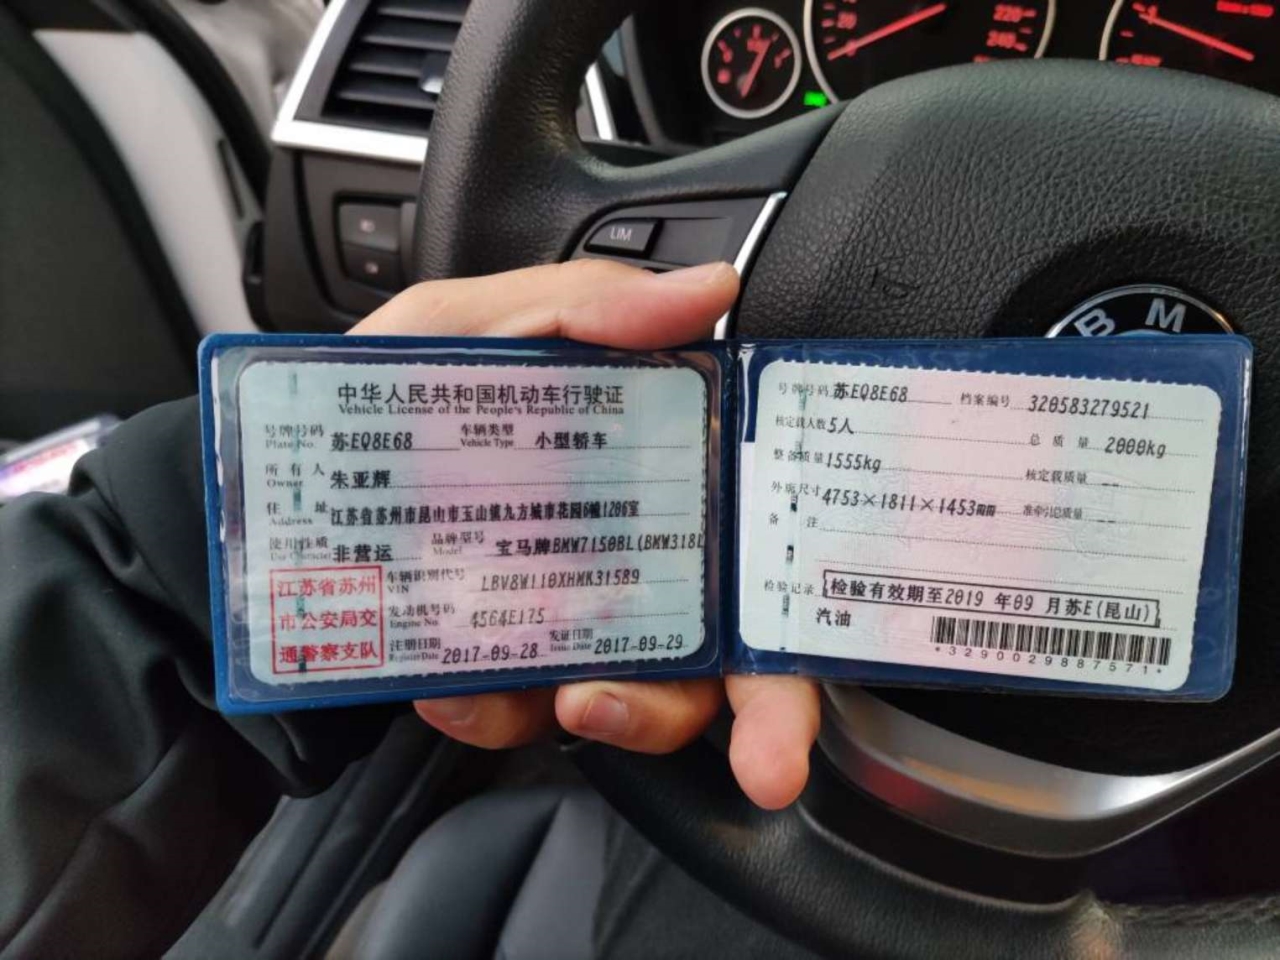 中华人民共和国机动车行驶证
Vehicle License of the People's Republic of China
号牌号码 苏EQ8E68 车辆类型 小型轿车
Plate No. Vehicle Type
所有人 朱亚辉
Owner
住址 江苏省苏州市昆山市玉山镇九方城市花园6幢1206室
Address
使用性质 非营运 品牌型号 宝马牌BMW7150BL(BMW318L
Use Character Model
江苏省苏州
市公安局交
通警察支队
车辆识别代号 LBV8W110XHMK31589
VIN
发动机号码 4564E175
Engine No.
注册日期 2017-09-28 发证日期 2017-09-29
Register Date Issue Date
号牌号码 苏EQ8E68 档案编号 320583279521
核定载人数 5人 总质量 2000kg
整备质量 1555kg 核定载质量 --
外廓尺寸 4753×1811×1453mm 准牵引总质量 --
备注
检验记录 检验有效期至2019年09月苏E(昆山)
汽油
*3290029887571*
LIM
BM
20
220
240